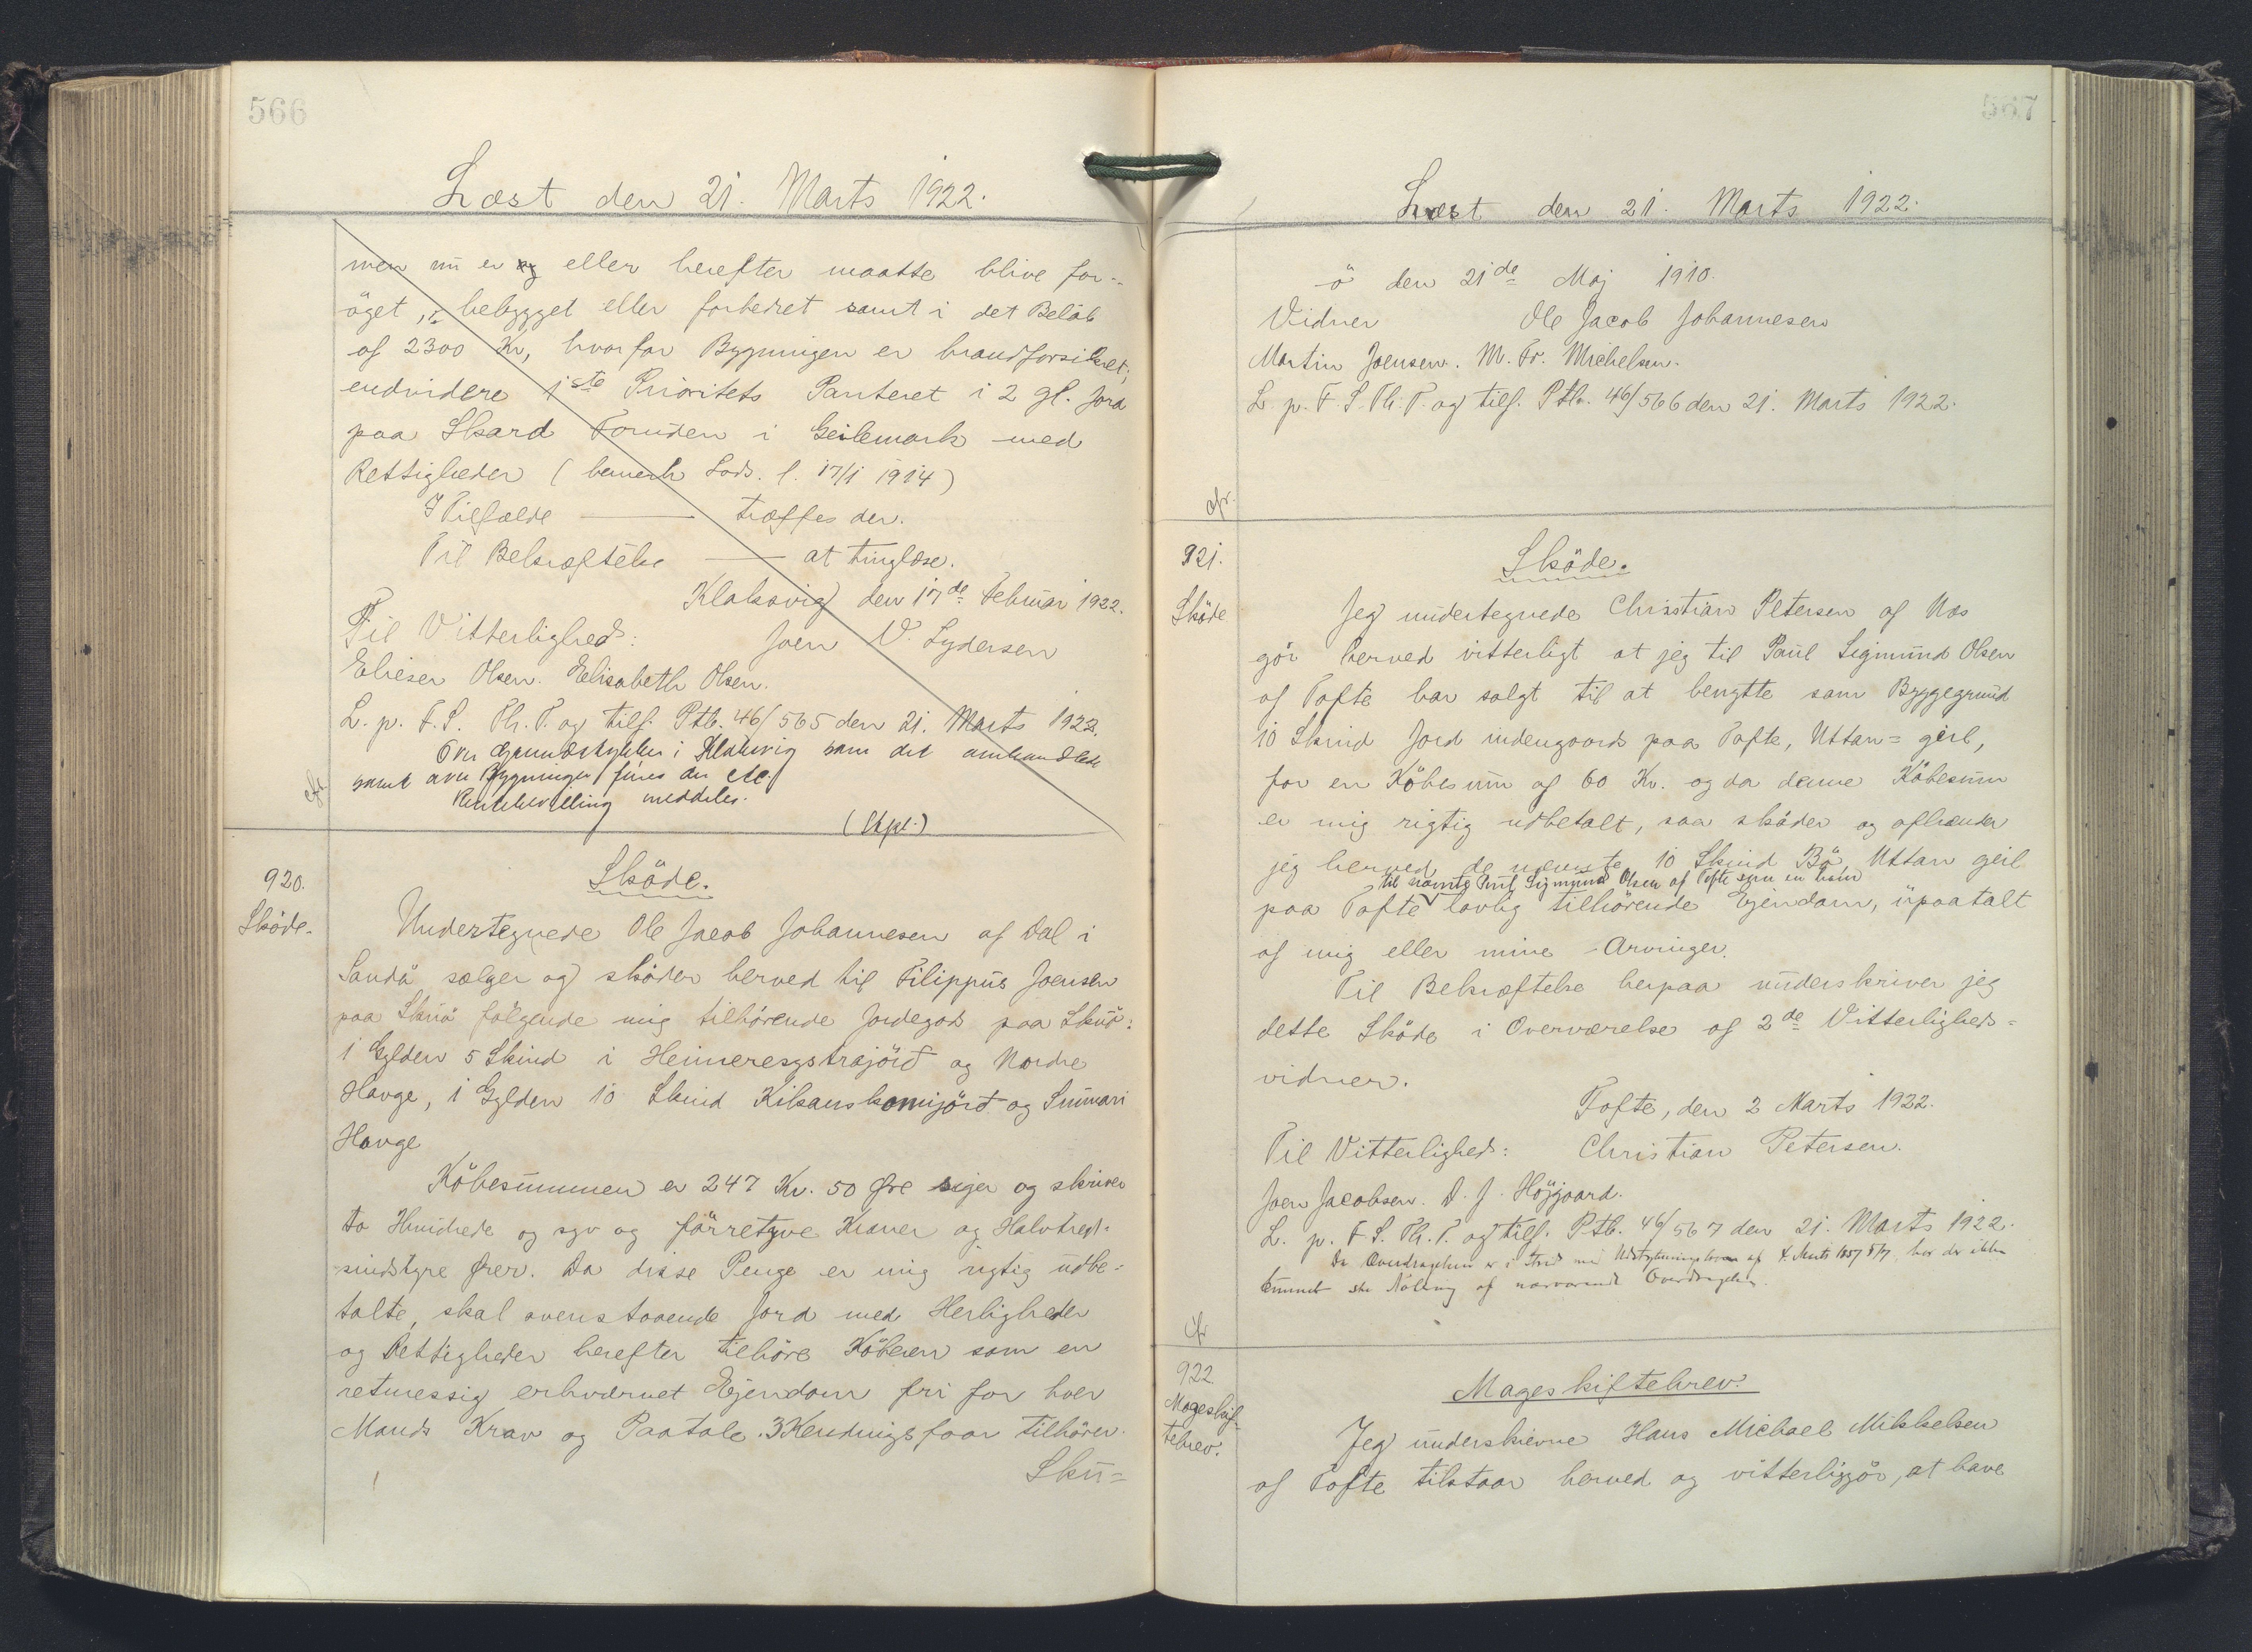 566
Læst den 21. Marts 1922.
men nu er og eller herefter maatte blive for-
øget, bebygget eller forbedret samt i det Beløb
af 2300 Kr, hvorfor Bygningen er brandforsikret;
endvidere 1ste Prioritets Panteret i 2 gl. Jord
paa Skard i Geilemark med
Rettigheder (bemærk Lods. l. 17/1 1914)
I Tilfælde — træffes der.
Til Bekræftelse — at tinglæse.
Klaksvig den 17de Februar 1922.
Til Vitterlighed: Joen V. Lydersen
Elieser Olsen. Elisabeth Olsen.
L. p. F. S. Th. T. og tilf. Ptb. 46/565 den 21. Marts 1922.
Over Grundstykker i Klaksvig som det omhandlede
samt over Bygninger føres der etc.
meddeles.
cfr.
(Udsl.)
920.
Sköde.
Sköde.
Undertegnede Ole Jacob Johannesen af Dal i
Sandö sælger og sköder herved til Filippus Joensen
paa Skuö følgende mig tilhørende Jordegods paa Skuö:
1 Gylden 5 Skind i Heimeresgstrajörd og Nordre
Havge, 1 Gylden 10 Skind Kikanskomijörd og Sunnari
Havge
Köbesummen er 247 Kr. 50 Øre siger og skriver
to Hundrede og syv og førretyve Kroner og Halvtred-
sindstyve Ører. Da disse Penge er mig rigtig udbe-
talte, skal ovenstaaende Jord med Herligheder
og Rettigheder herefter tilhöre Köberen som en
retmessig erhvervet Ejendom fri for hver
Mands Krav og Paatale. 3 Kendingsfaar tilhörer.
Sku=
567
Læst den 21. Marts 1922.
ö den 21de Maj 1910.
Vidner Ole Jacob Johannesen
Martin Joensen. M. Fr. Michelsen.
L. p. F. S. Th. T. og tilf. Ptb. 46/566 den 21. Marts 1922.
cfr.
921.
Sköde
Sköde.
Jeg undertegnede Christian Petersen af Næs
gör herved vitterligt at jeg til Paul Sigmund Olsen
af Tofte har solgt til at benytte som Byggegrund
10 Skind Jord indengaards paa Tofte, Uttan=geil,
for en Köbesum af 60 Kr. og da denne Köbesum
er mig rigtig udbetalt, saa sköder og afhænder
jeg herved de nævnte 10 Skind Bö, Uttan geil
til nævnte Paul Sigmund Olsen af Tofte som en ham
paa Tofte lovlig tilhörende Ejendom, upaatalt
af mig eller mine Arvinger.
Til Bekræftelse herpaa underskriver jeg
dette Sköde i Overværelse af 2de Vitterligheds=
vidner.
Tofte, den 2 Marts 1922.
Til Vitterlighed: Christian Petersen.
Joen Jacobsen. D. J. Höjgaard.
L. p. F. S. Th. T. og tilf. Ptb. 46/567 den 21. Marts 1922.
Da Overdragelsen er i Strid med Udstykningsloven af 4. Marts 1857 § 7, har der ikke
kunnet ske Nötering af nærværende Overdragelse.
cfr
922.
Mageskif-
tebrev.
Mageskiftebrev.
Jeg underskrevne Hans Michael Mikkelsen
af Tofte tilstaar herved og vitterliggör, at have